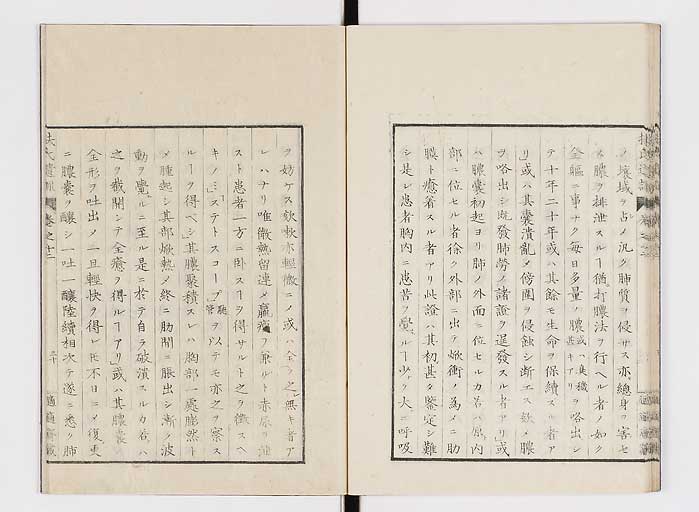 ノ壌域ヲ占メ汎ク肺質ヲ侵サス亦總身ヲ害セ
ス膿ヲ排泄スルヿ猶打膿法ヲ行ヘル者ノ如ク
全軀ニ事ナク毎日多量ノ膿或ハ臭穢甚キアリヲ咯出シ
テ十年二十年或ハ其餘モ生命ヲ保續スル者ア
リ或ハ其囊潰亂メ傍圍ヲ侵蝕シ漸エス膿
ヲ咯出シ既發肺勞ノ諸證ク逞發スル者アリ或
ハ膿囊初起ヨリ肺ノ外面ニ位セルカ若ハ内
部ニ位セル者徐ク外部ニ出テ焮衝ノ為メニ肋
膜ト癒着スル者アリ此證ハ其初甚タ鑒定シ難
シ是レ患者胸内ニ患苦ヲ覺ルヿ少ク大ニ呼吸
ヲ妨ケス欬嗽亦輕微ニメ或ハ全ク之無キ者ア
レハナリ唯微熱留連メ羸瘦ヲ兼ルト赤尿ヲ泄
スト患者一方ニ卧スヿヲ得サルト之ヲ徴スヘ
キノミステトスコープ聽管ヲ以テモ亦之ヲ察ス
ルヿク得ヘシ其膿聚積スレハ胸部一處膨然ト
メ腫起シ其部焮熱メ終ニ肋間ニ脹出シ漸ノ波
動ヲ覺ルニ至ル是ニ於テ自ラ破潰スルカ若ハ
之ヲ截開シテ全癒ヲ得ルヿアリ或ハ其膿囊
全形ヲ吐出メ一旦輕快ク得レヒ不日ニメ復更
ニ膿囊ヲ釀シ一吐一釀陸續相次テ遂ニ悉ク肺
扶氏遺訓 卷之十二
二十 適適齋藏